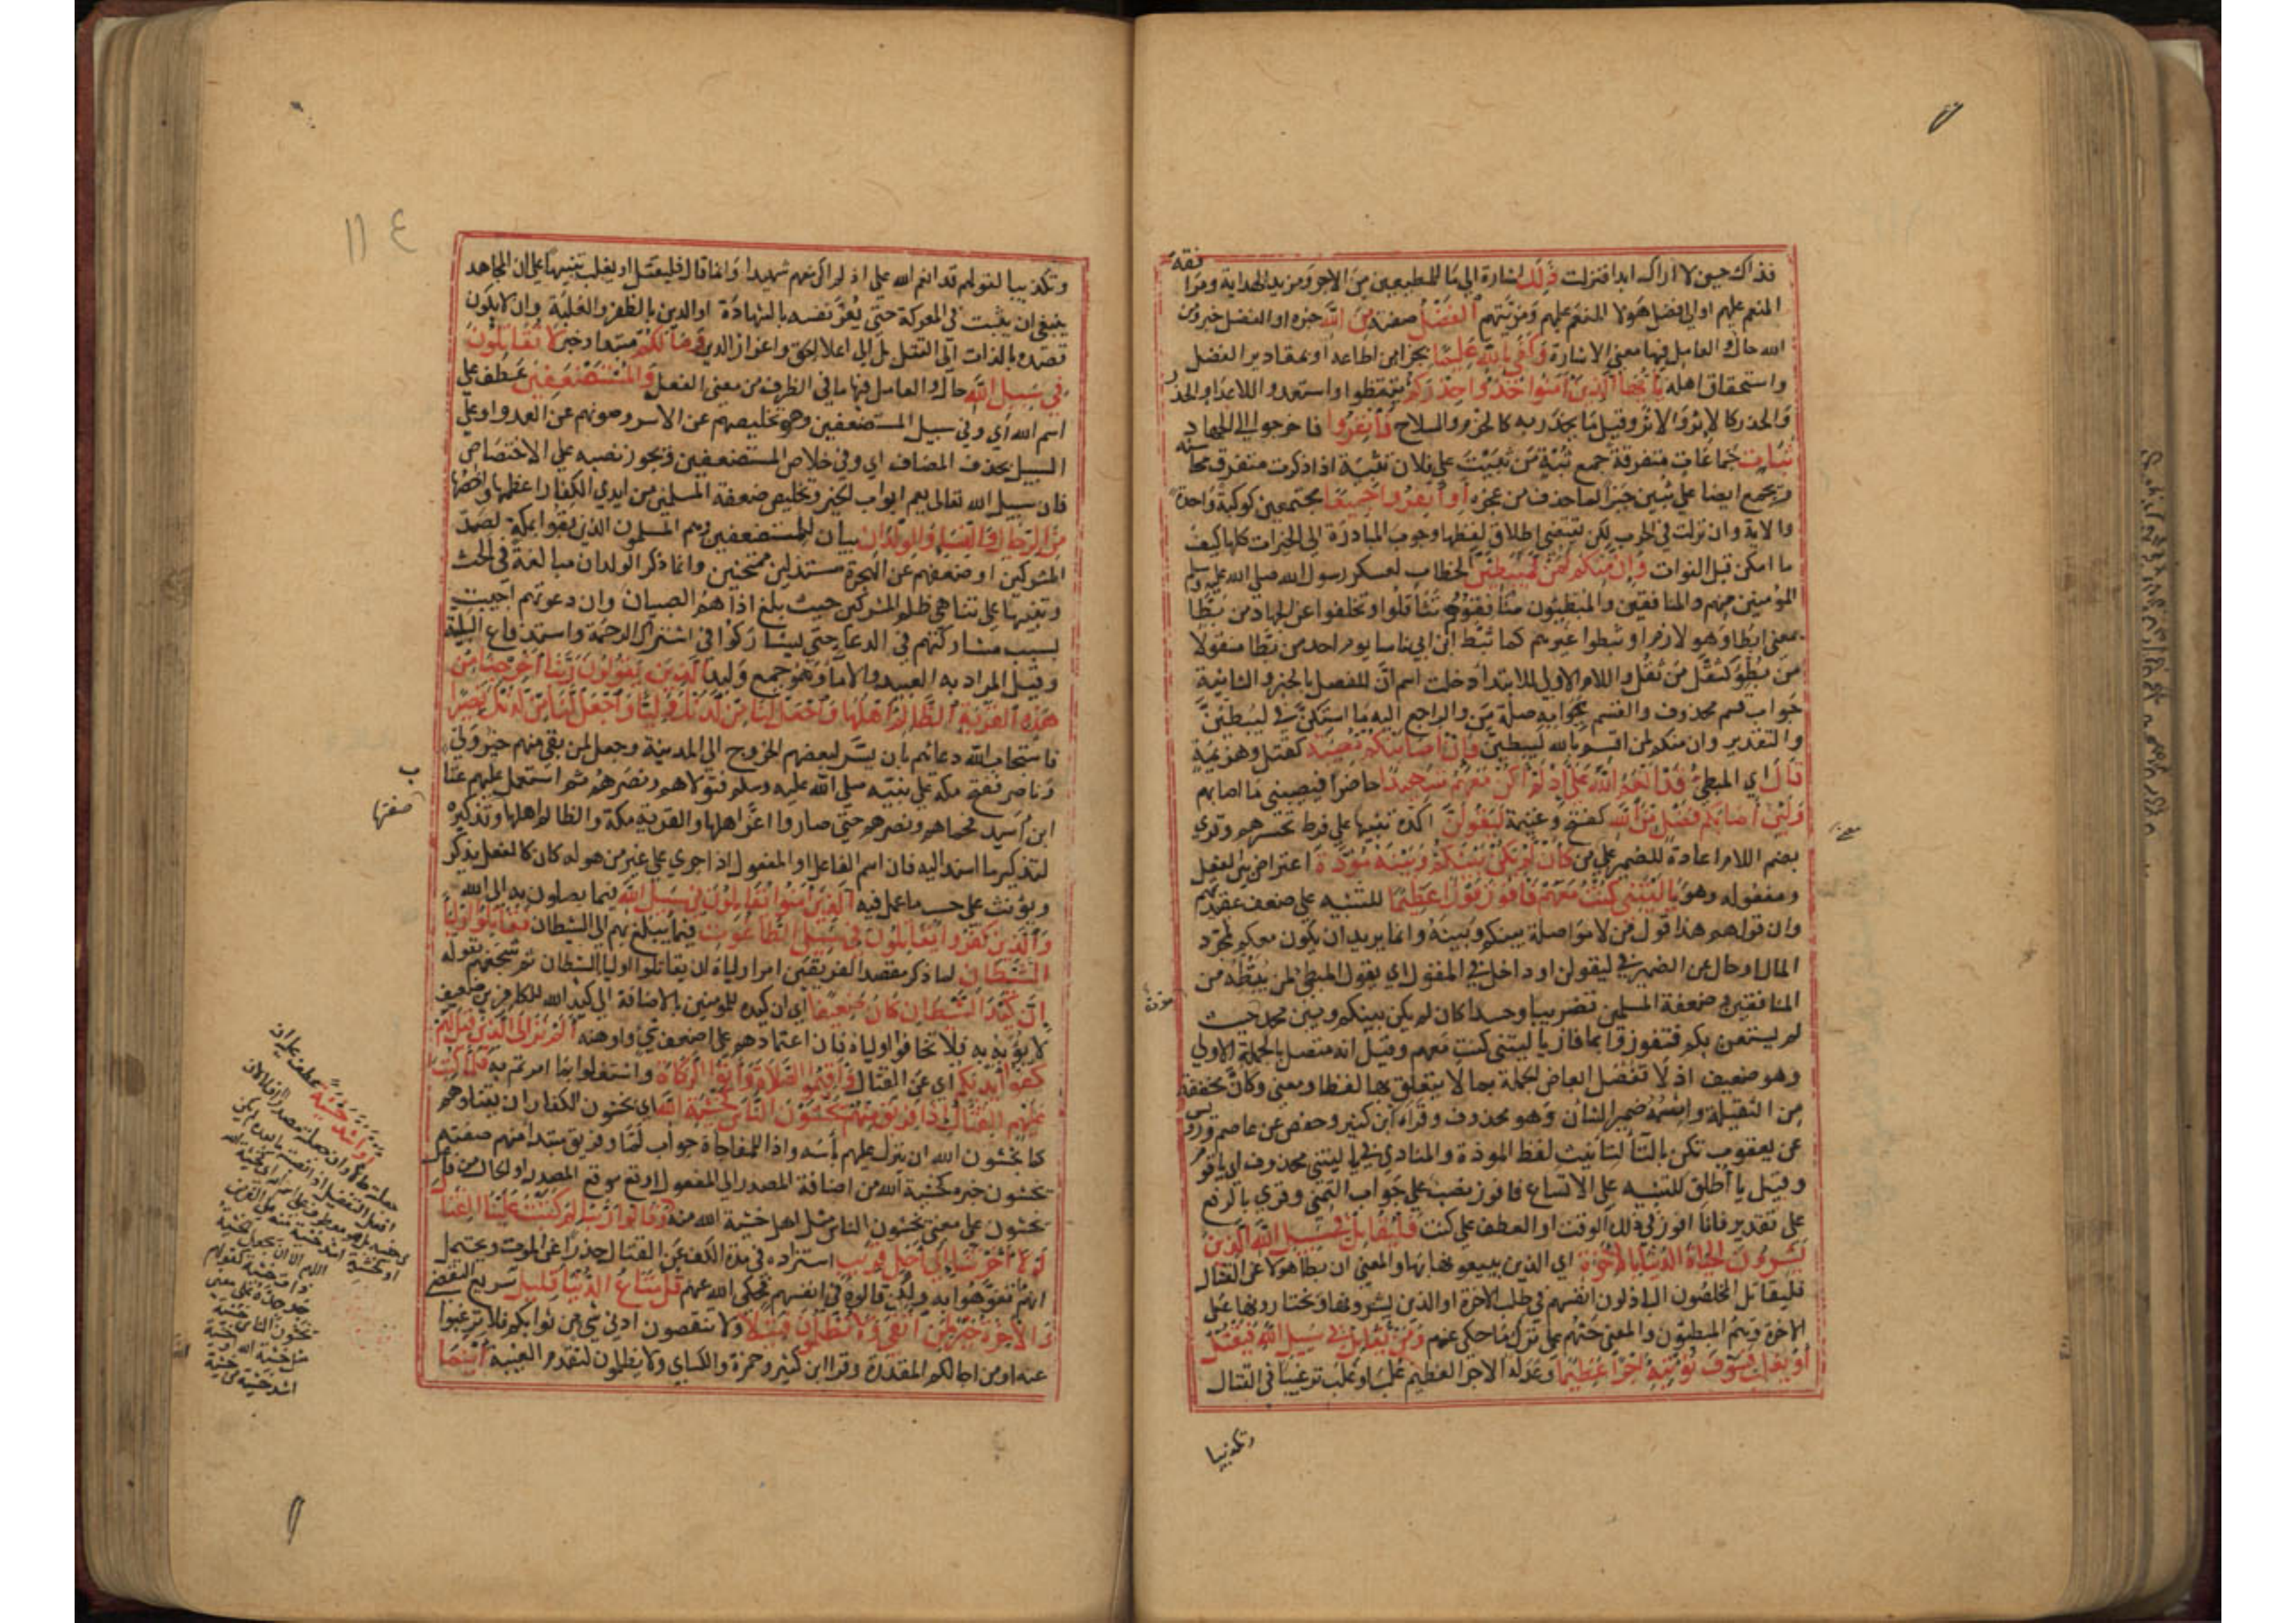 فذاك حين لا اراك ابدا فنزلت ذلك اشارة الي ما للمطيعين من الاجر ومزيد الهداية ومرافقة
المنعم عليهم او الي فضل هولا المنعم عليهم ومزيتهم الفضل صفته من الله خبره او الفضل خبر ومن
الله حال والعامل فيها معني الاشارة وكفي بالله عليما بجزا من اطاعه او بمقادير الفضل
واستحقاق اهله يا ايها الذين امنوا خذوا حذركم تيقظوا واستعدوا للاعدا والحذر
والحذر كالاثر والاثر وقيل ما يحذر به كالحزم والسلاح فانفروا فاخرجوا الي الجهاد
ثبات جماعات متفرقة جمع ثبة من ثبيت علي فلان تثبية اذا ذكرت متفرق محاسنه
ويجمع ايضا علي ثبين جبرا لما حذف من عجزه او انفروا جميعا مجتمعين كوكبة واحدة
والاية وان نزلت في الحرب لكن تقتضي اطلاق لفظها وجوب المبادرة الي الخيرات كلها كيف
ما امكن قبل الفوات وان منكم لمن ليبطئن الخطاب لعسكر رسول الله صلي الله عليه وسلم
المؤمنين منهم والمنافقين والمبطئون منافقوهم تثاقلوا وتخلفوا عن الجهاد من بطا
بمعني ابطا وهو لازم او ثبطوا غيرهم كما ثبط ابن ابي ناسا يوم احد من بطا منقولا
من بطؤ كثقل من ثقل واللام الاولي للابتدا دخلت اسم ان للفصل بالخبر والثانية
جواب قسم محذوف والقسم بجوابه صلة من والراجع اليه ما استكن في ليبطئن
والتقدير وان منكم لمن اقسم بالله ليبطئن فان اصابتكم مصيبة كقتل وهزيمة
قال اي المبطئ قد انعم الله علي اذ لم اكن معهم شهيدا حاضرا فيصيبني ما اصابهم
ولئن اصابكم فضل من الله كفتح وغنيمة ليقولن اكده تنبيها علي فرط تحسرهم وقري
بضم اللام اعادة للضمير علي من كان لم تكن بينكم وبينه مودة اعتراض بين الفعل
ومفعوله وهو يا ليتني كنت معهم فافوز فوزا عظيما للتنبيه علي ضعف عقيدتهم
وان قولهم هذا قول من لا مواصلة بينكم وبينه وانما يريد ان يكون معكم لمجرد
المال او حال عن الضمير في ليقولن او داخل في المقول اي يقول المبطئ لمن يبطئه من
المنافقين وضعفة المسلمين تضريبا وحسدا كان لم يكن بينكم وبين محمد حيث
لم يستعن بكم فتفوزوا بما فاز يا ليتني كنت معهم وقيل انه متصل بالجملة الاولي
وهو ضعيف اذ لا تفصل ابعاض الجملة بما لا يتعلق بها لفظا ومعني وكان مخففة
من الثقيلة واسمه ضمير الشان وهو محذوف وقراء ابن كثير وحفص عن عاصم ورويس
عن يعقوب تكن بالتا لتانيث لفظ المودة والمنادي في يا ليتني محذوف اي يا قوم
وقيل يا اطلق للتنبيه علي الاتساع فافوز نصب علي جواب التمني وقري بالرفع
علي تقدير فانا افوز في ذلك الوقت او العطف علي كنت فليقاتل في سبيل الله الذين
يشرون الحياة الدنيا بالاخرة اي الذين يبيعونها بها والمعني ان بطا هولا عن القتال
فليقاتل المخلصون الباذلون انفسهم في طلب الاخرة او الذين يشرونها ويختارونها علي
الاخرة وهم المبطئون والمعني حثهم علي ترك ما حكي عنهم ومن يقاتل في سبيل الله فيقتل
او يغلب فسوف نؤتيه اجرا عظيما وعد له الاجر العظيم غلب او غلب ترغيبا في القتال
وتكذيبا
١١٤
وتكذيبا لقولهم قد انعم الله علي اذ لم اكن معهم شهيدا وانما قال فليقتل او يغلب تنبيها علي ان المجاهد
ينبغي ان يثبت في المعركة حتي يعز نفسه بالشهادة او الدين بالظفر والغلبة وان لا يكون
قصده بالذات الي القتل بل الي اعلا الحق واعزاز الدين وما لكم مبتدا وخبر لا تقاتلون
في سبيل الله حال والعامل فيها ما في الظرف من معني الفعل والمستضعفين عطف علي
اسم الله اي وفي سبيل المستضعفين وهو تخليصهم عن الاسر وصونهم عن العدو او علي
السبيل بحذف المضاف اي وفي خلاص المستضعفين ويجوز نصبه علي الاختصاص
فان سبيل الله تعالي يعم ابواب الخير وتخليص ضعفة المسلمين من ايدي الكفار اعظمها واخصها
من الرجال والنساء والولدان بيان للمستضعفين وهم المسلمون الذين بقوا بمكة لصد
المشركين او ضعفهم عن الهجرة مستذلين ممتحنين وانما ذكر الولدان مبالغة في الحث
وتنبيها علي تناهي ظلم المشركين حيث بلغ اذاهم الصبيان وان دعوتهم اجيبت
بسبب مشاركتهم في الدعا حتي يشاركوا في استنزال الرحمة واستدفاع البلية
وقيل المراد به العبيد والاما وهو جمع وليد الذين يقولون ربنا اخرجنا من
هذه القرية الظالم اهلها واجعل لنا من لدنك وليا واجعل لنا من لدنك نصيرا
فاستجاب الله دعائهم بان يسر لبعضهم الخروج الي المدينة وجعل لمن بقي منهم خير ولي
وناصر ففتح مكة علي نبيه صلي الله عليه وسلم فتولاهم ونصرهم ثم استعمل عليهم عتاب
ابن اسيد فحماهم ونصرهم حتي صاروا اعز اهلها والقرية مكة والظالم اهلها وتذكيره
لتذكير ما اسند اليه فان اسم الفاعل او المفعول اذا جري علي غير من هو له كان كالفعل يذكر
ويؤنث علي حسب ما عمل فيه الذين امنوا يقاتلون في سبيل الله فيما يصلون به الي الله
والذين كفروا يقاتلون في سبيل الطاغوت فيما يبلغ بهم الي الشيطان فقاتلوا اولياء
الشيطان لما ذكر مقصد الفريقين امر اولياه ان يقاتلوا اوليا الشيطان ثم شجعهم بقوله
ان كيد الشيطان كان ضعيفا اي ان كيده للمومنين بالاضافة الي كيد الله للكافرين ضعيف
لا يؤبه به فلا تخافوا اولياه فان اعتمادهم علي اضعف شي واوهنه الم تر الي الذين قيل لهم
كفوا ايديكم اي عن القتال واقيموا الصلاة وآتوا الزكاة واشتغلوا بما امرتم به فلما كتب
عليهم القتال اذا فريق منهم يخشون الناس كخشية الله اي يخشون الكفار ان يقتلوهم
كما يخشون الله ان ينزل عليهم بأسه واذا للمفاجاة جواب لما وفريق مبتدا منهم صفته
يخشون خبره كخشية الله من اضافة المصدر الي المفعول وقع موقع المصدر او الحال من فاعل
يخشون علي معني يخشون الناس مثل اهل خشية الله منه وقالوا ربنا لم كتبت علينا القتال
لولا اخرتنا الي اجل قريب استزادة في مدة الكف عن القتال حذرا عن الموت ويحتمل
انهم تفوهوا به ولكن قالوه في انفسهم فحكي الله عنهم قل متاع الدنيا قليل سريع التقضي
والاخرة خير لمن اتقي ولا تظلمون فتيلا ولا تنقصون ادني شي من ثوابكم فلا ترغبوا
عنه او من اجالكم المقدرة وقرا ابن كثير وحمزة والكسائي ولا يظلمون لتقدم الغيبة اينما
صفتها
او اشد خشية عطف عليه ان
جعلته حالا وان جعلته مصدرا فلا لان
افعل التفضيل اذا نصب ما بعده لم يكن
من جنسه بل هو معطوف علي اسم الله اي كخشية الله
او كخشية اشد خشية منه علي الفرض
اللهم الا ان تجعل الخشية
ذات خشية كقولهم
جد جده علي معني
يخشون الناس خشية
مثل خشية الله او خشية
اشد خشية من خشية